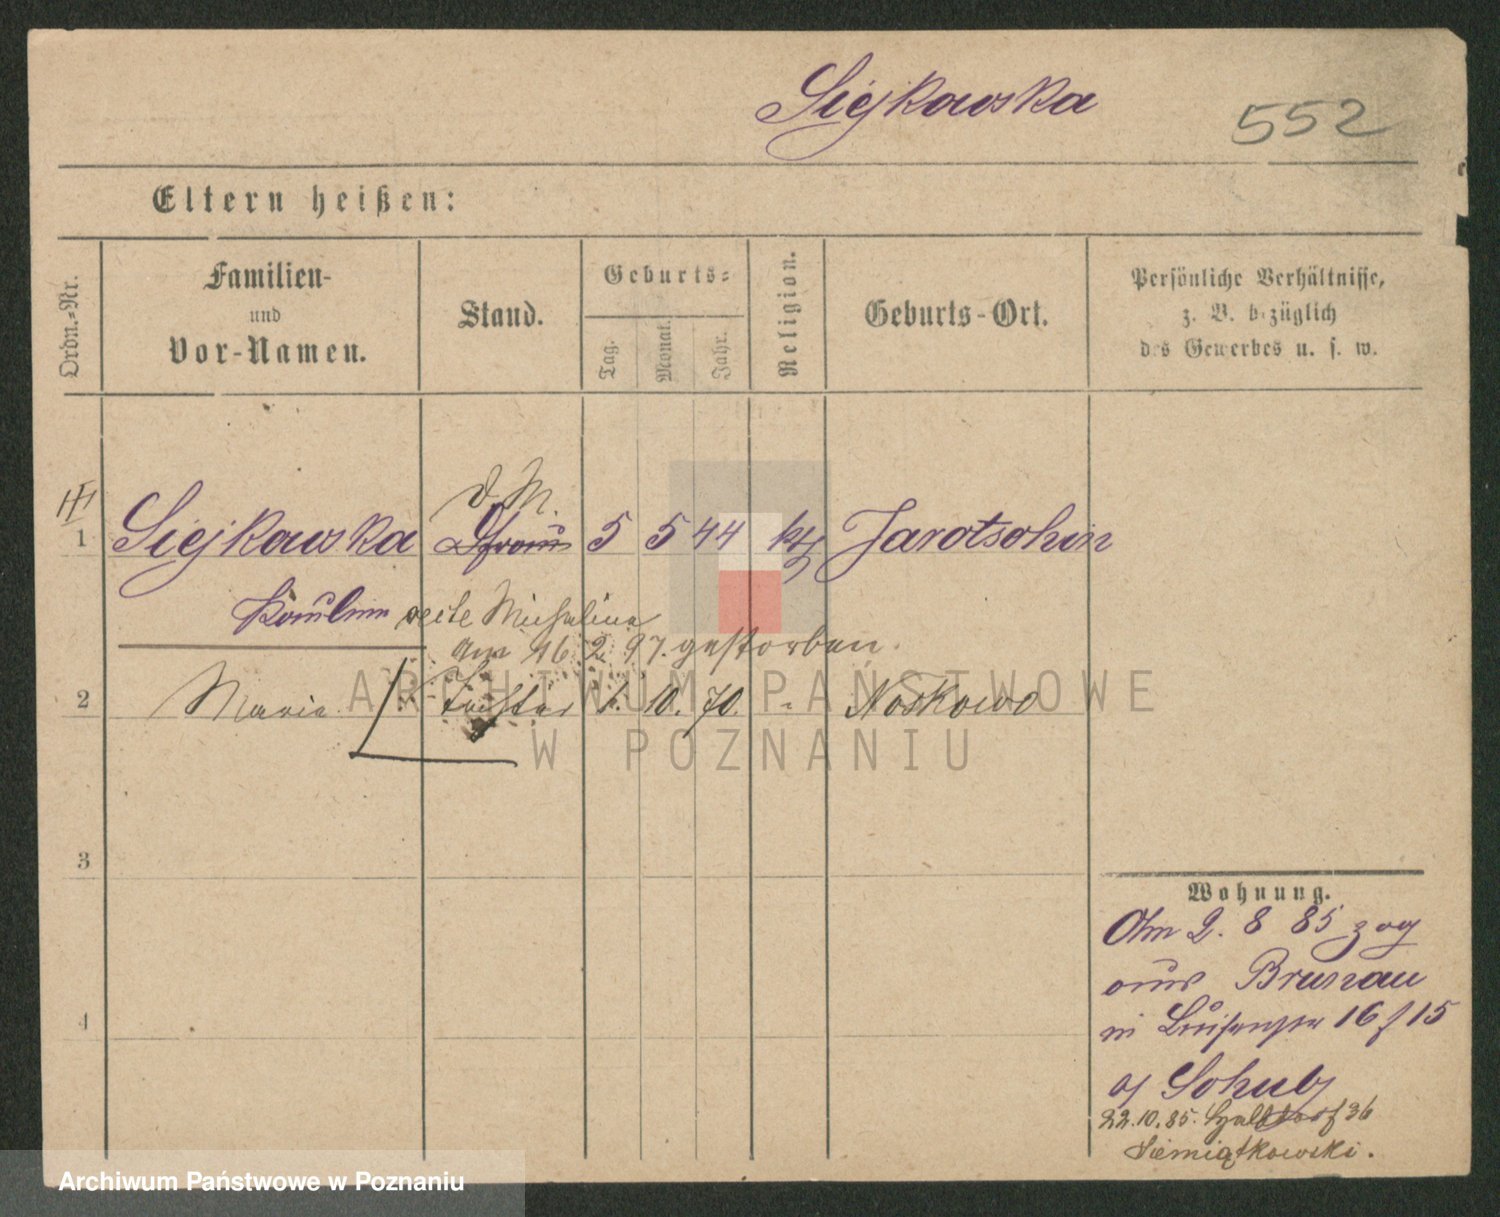 Siejkowska
552
Eltern heißen:
Ordn.-Nr.
Familien-
und
Vor-Namen.
Stand.
Geburts-
Tag.
Monat.
Jahr.
Religion.
Geburts-Ort.
Persönliche Verhältnisse,
z. B. bezüglich
des Gewerbes u. s. w.
d. M.
1 Siejkowska Frau 5 5 44 kth Jarotschin
Pauline recte Michalina
am 16 2 97. gestorben.
2 Maria Tochter 1. 10. 70. - Noskowo
3
4
Wohnung.
Am 2. 8 85 zog
aus Brunau
in Luisenstr 16 f 15
a/ Schulz
22.10.85. Halbdorf 36
Siemiątkowski.
ARCHIWUM PAŃSTWOWE
W POZNANIU
Archiwum Państwowe w Poznaniu